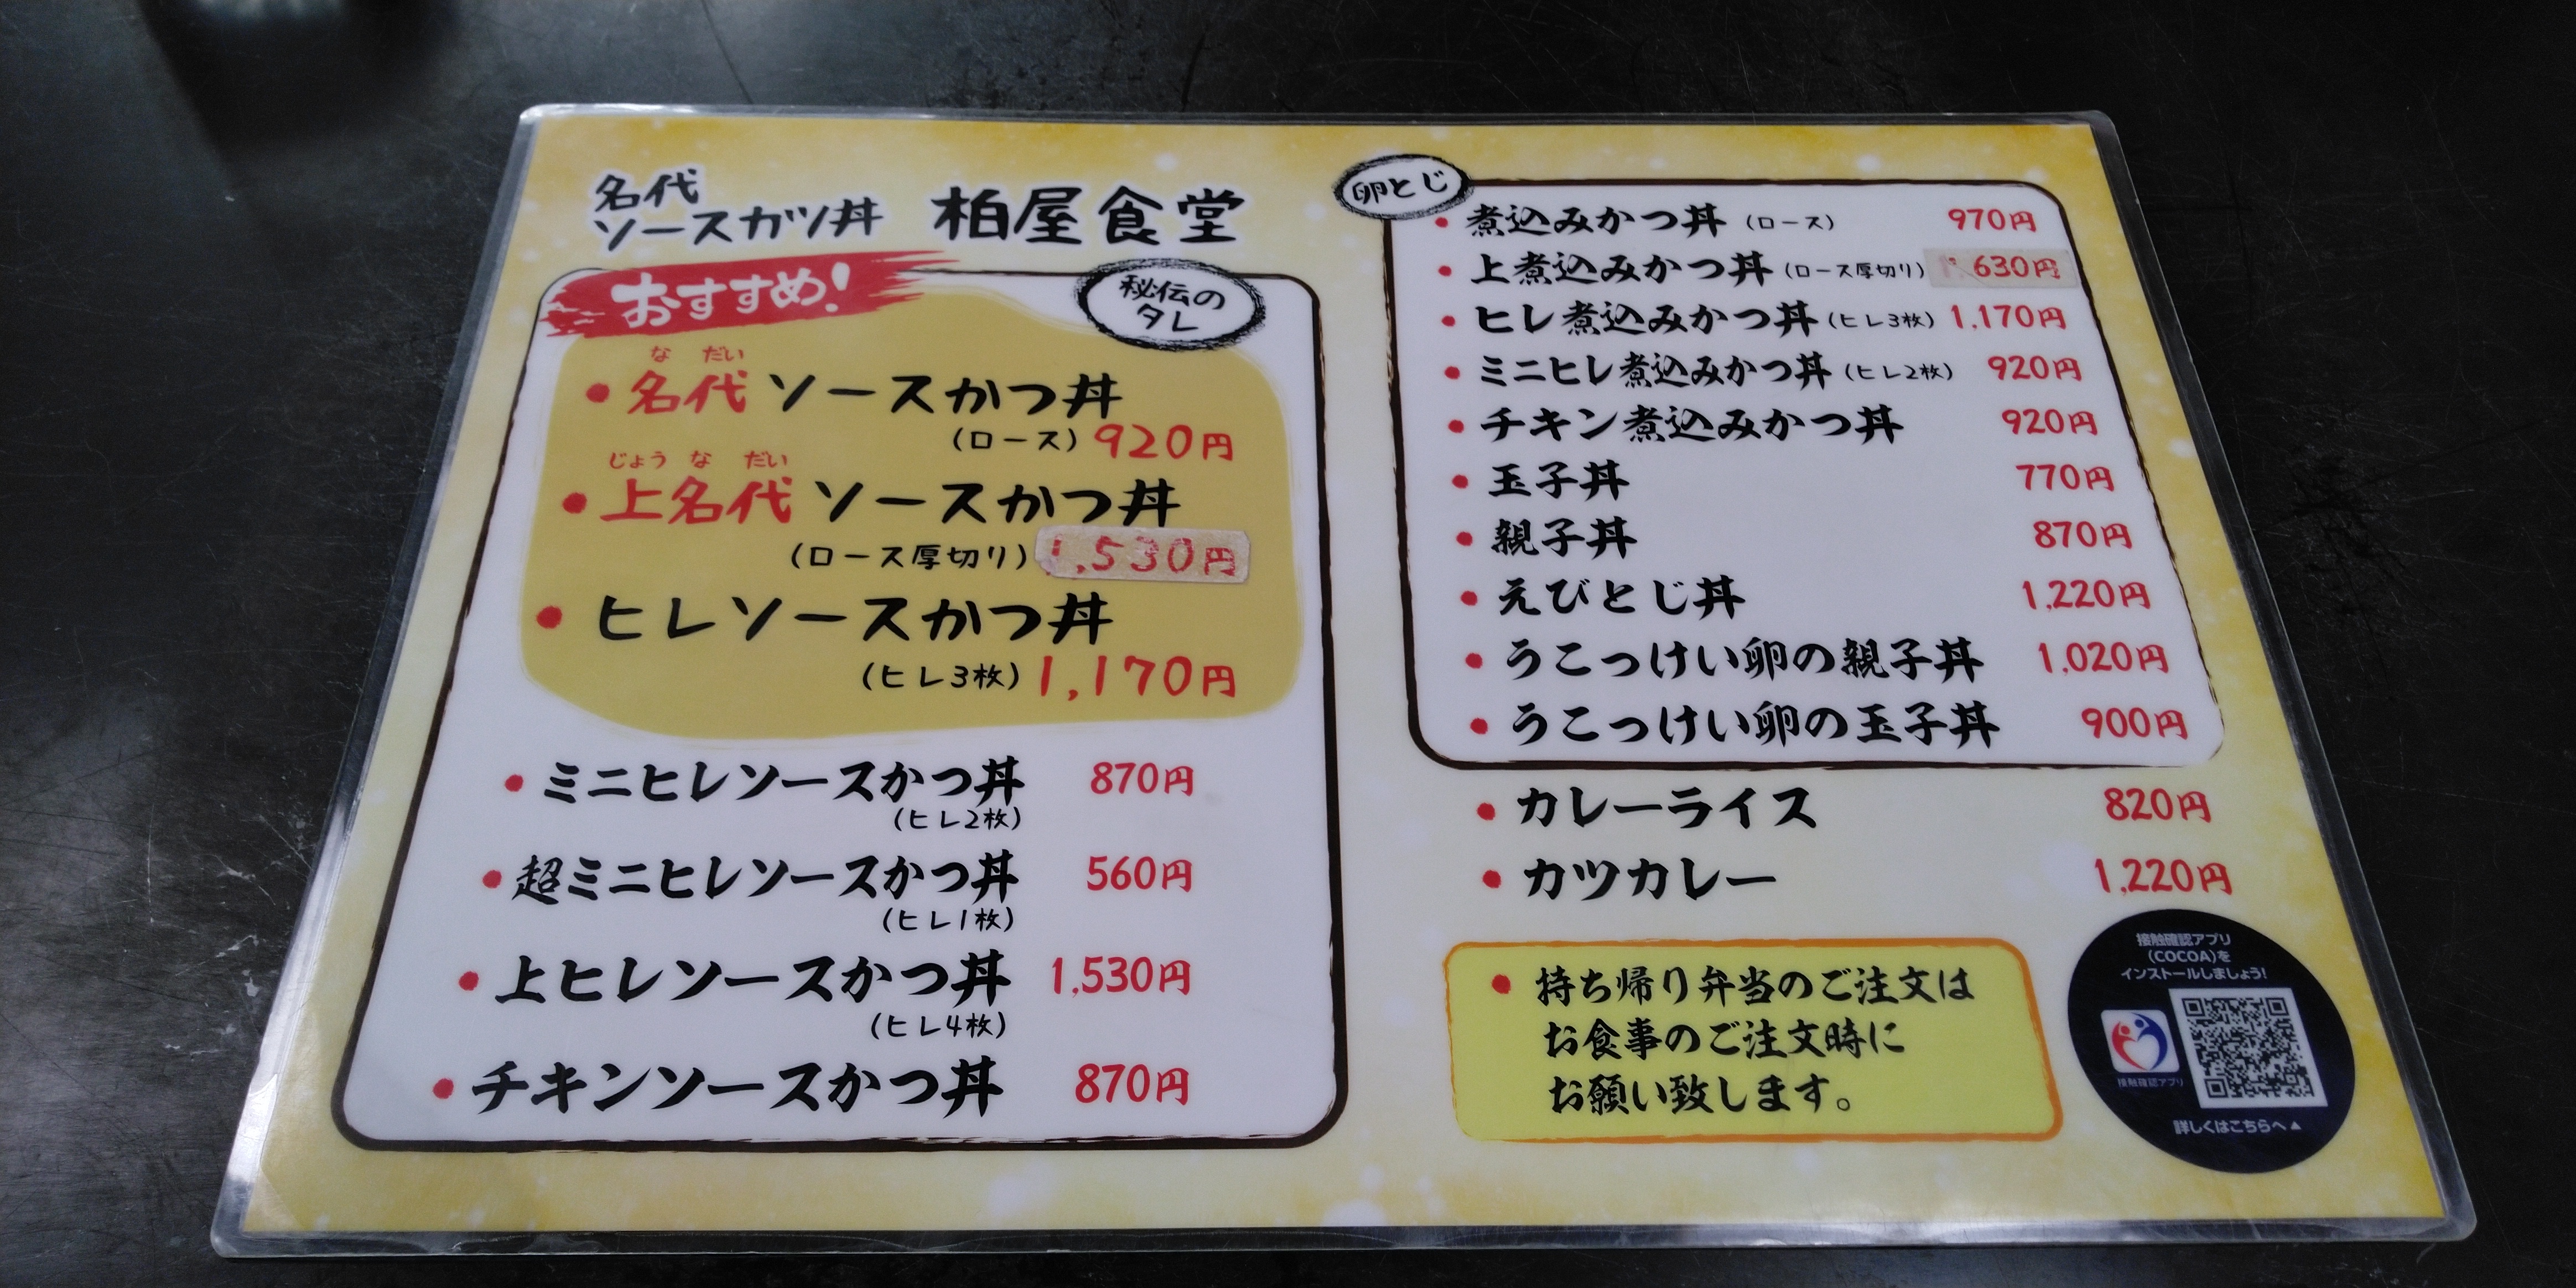 名代
ソースカツ丼 柏屋食堂
おすすめ!
秘伝の
タレ
な だい
• 名代 ソースかつ丼
(ロース) 920円
じょう な だい
• 上名代 ソースかつ丼
(ロース厚切り) 1,530円
• ヒレソースかつ丼
(ヒレ3枚) 1,170円
• ミニヒレソースかつ丼 870円
(ヒレ2枚)
• 超ミニヒレソースかつ丼 560円
(ヒレ1枚)
• 上ヒレソースかつ丼 1,530円
(ヒレ4枚)
• チキンソースかつ丼 870円
卵とじ
• 煮込みかつ丼 (ロース) 970円
• 上煮込みかつ丼 (ロース厚切り) 630円
• ヒレ煮込みかつ丼 (ヒレ3枚) 1,170円
• ミニヒレ煮込みかつ丼 (ヒレ2枚) 920円
• チキン煮込みかつ丼 920円
• 玉子丼 770円
• 親子丼 870円
• えびとじ丼 1,220円
• うこっけい卵の親子丼 1,020円
• うこっけい卵の玉子丼 900円
• カレーライス 820円
• カツカレー 1,220円
• 持ち帰り弁当のご注文は
お食事のご注文時に
お願い致します。
接触確認アプリ
(COCOA)を
インストールしましょう!
接触確認アプリ
詳しくはこちらへ▲